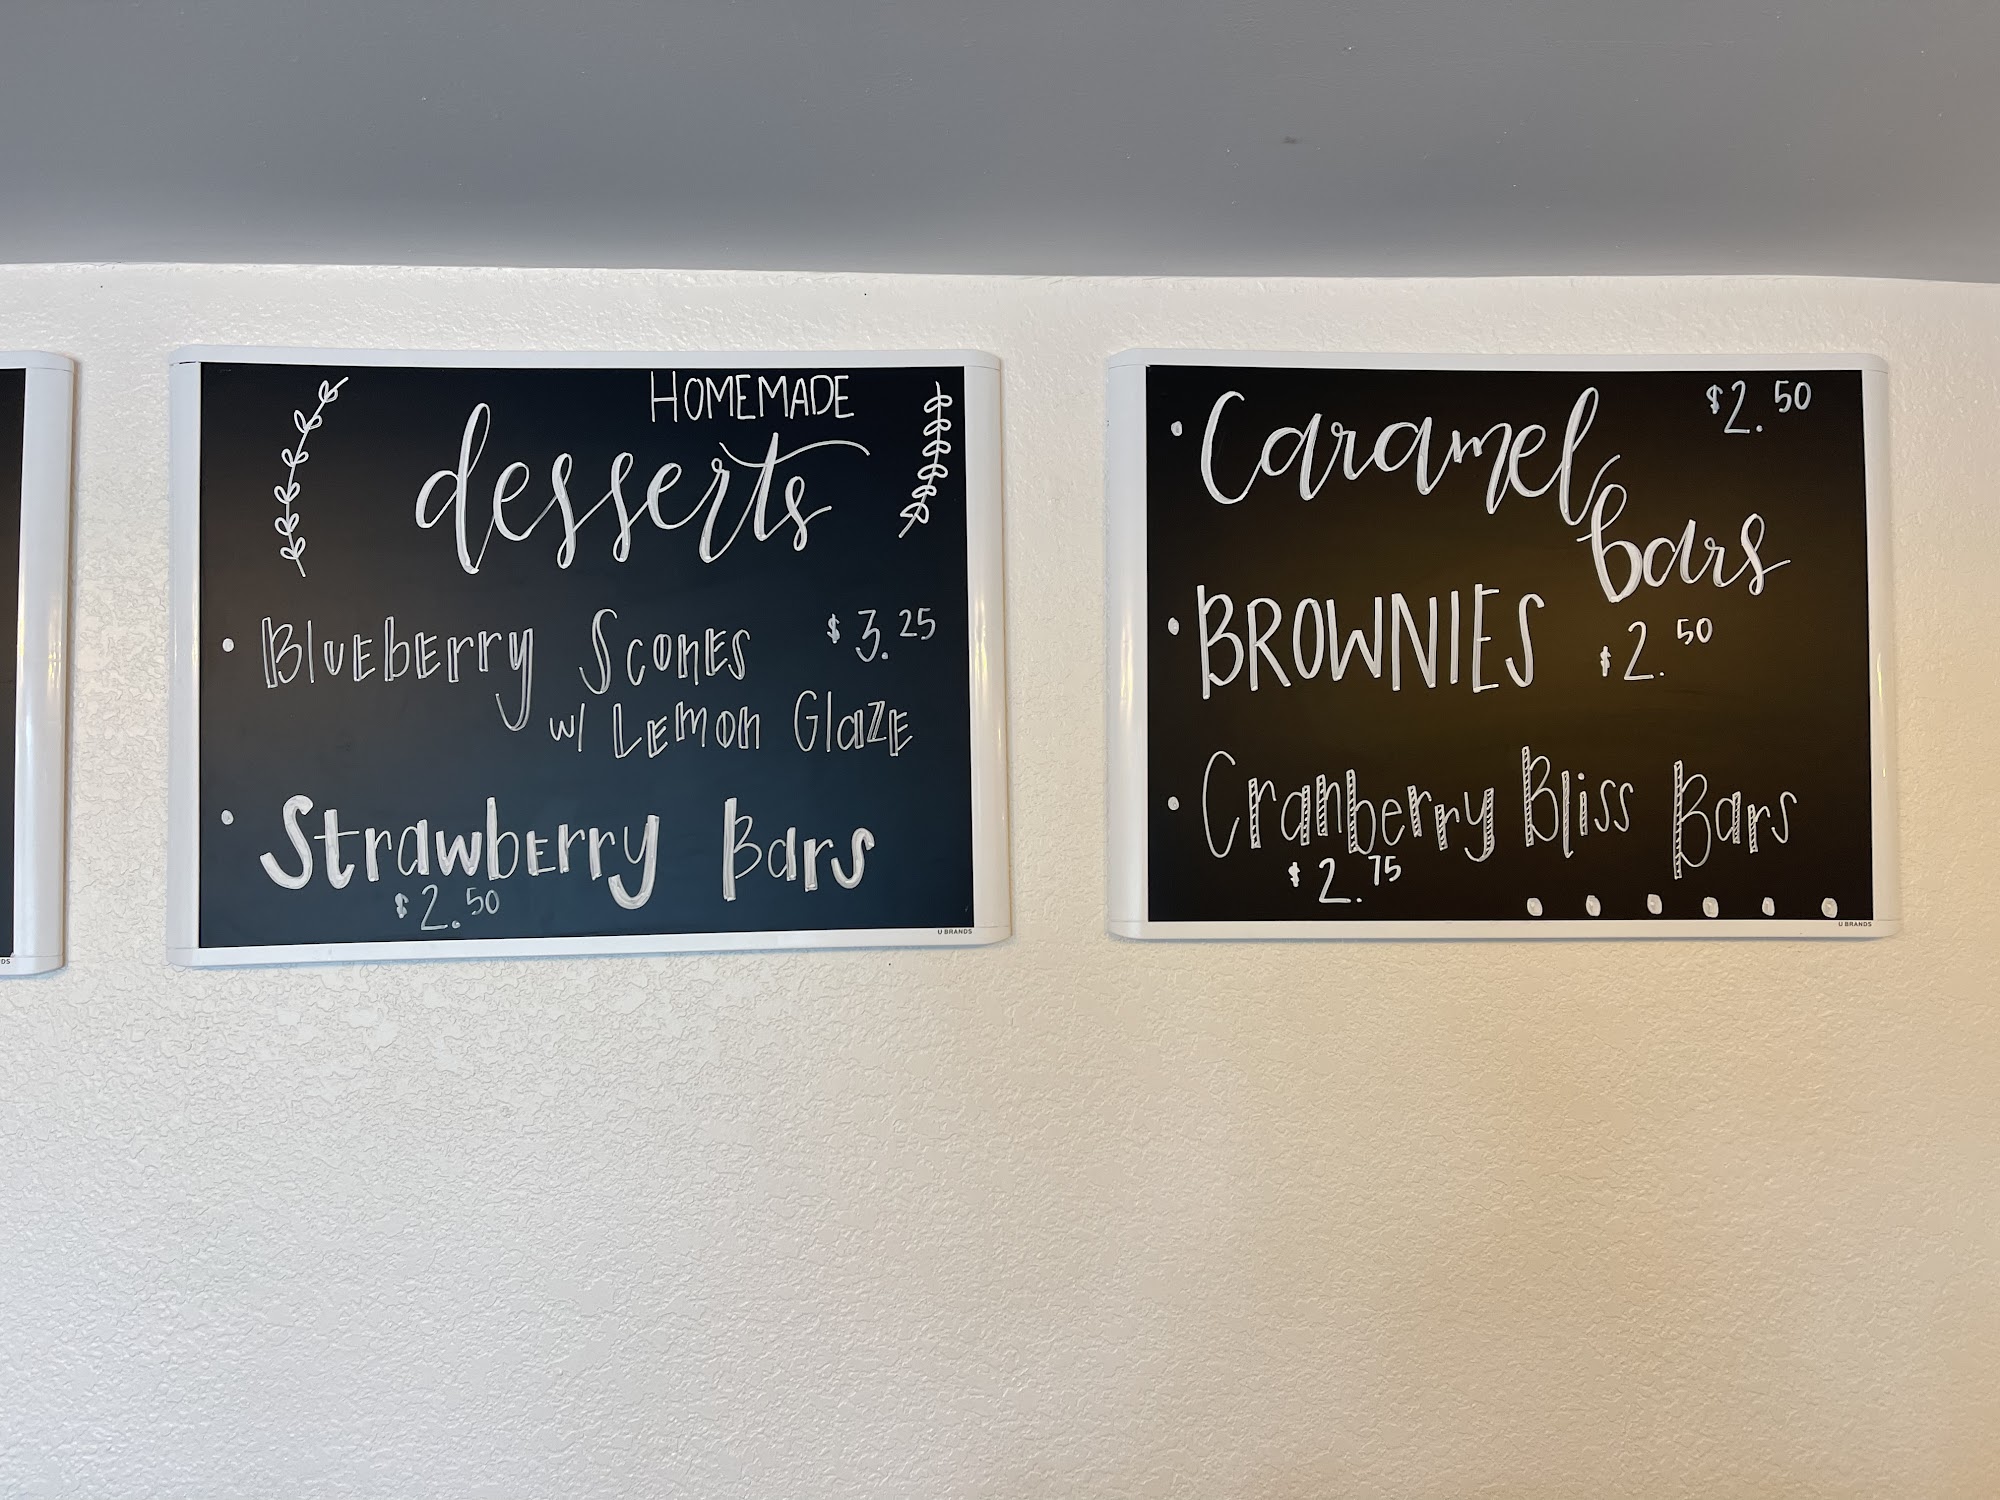 HOMEMADE
desserts
• Blueberry Scones $3.25
w/ Lemon Glaze
• Strawberry Bars
$2.50
U BRANDS
• Caramel $2.50
bars
• BROWNIES $2.50
• Cranberry Bliss Bars
$2.75
U BRANDS
DS